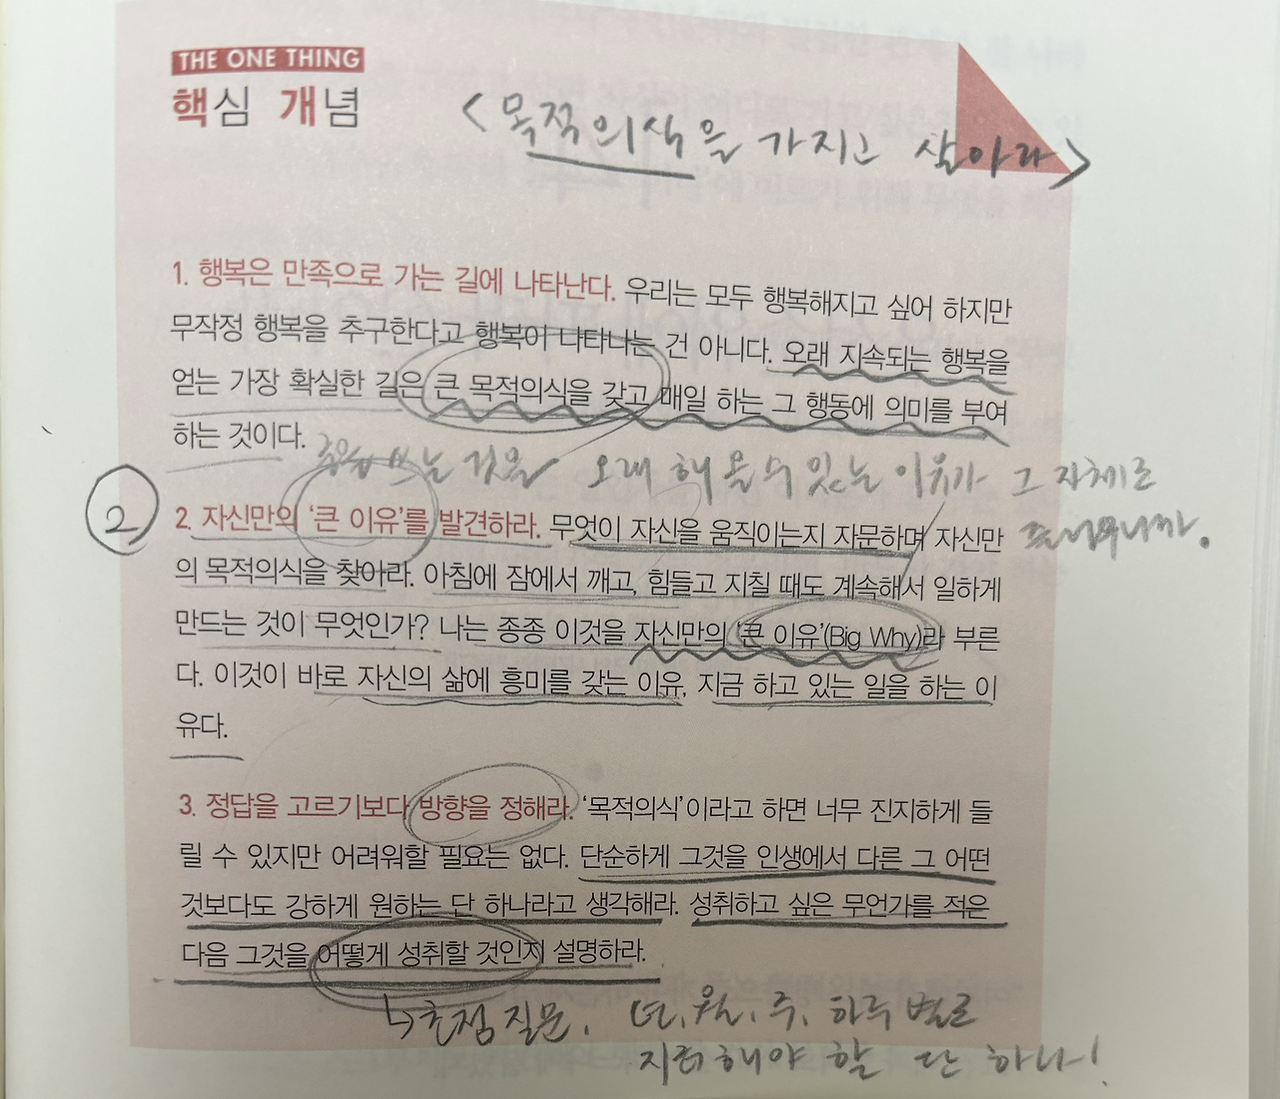 THE ONE THING
핵심 개념
<목적의식을 가지고 살아라>
1. 행복은 만족으로 가는 길에 나타난다. 우리는 모두 행복해지고 싶어 하지만
무작정 행복을 추구한다고 행복이 나타나는 건 아니다. 오래 지속되는 행복을
얻는 가장 확실한 길은 큰 목적의식을 갖고 매일 하는 그 행동에 의미를 부여
하는 것이다.
쓰는 것을 오래 해 올 수 있는 이유가 그 자체로
2
2. 자신만의 '큰 이유'를 발견하라. 무엇이 자신을 움직이는지 자문하며 자신만
의 목적의식을 찾아라. 아침에 잠에서 깨고, 힘들고 지칠 때도 계속해서 일하게
만드는 것이 무엇인가? 나는 종종 이것을 자신만의 '큰 이유'(Big Why)라 부른
다. 이것이 바로 자신의 삶에 흥미를 갖는 이유, 지금 하고 있는 일을 하는 이
유다.
3. 정답을 고르기보다 방향을 정해라. '목적의식'이라고 하면 너무 진지하게 들
릴 수 있지만 어려워할 필요는 없다. 단순하게 그것을 인생에서 다른 그 어떤
것보다도 강하게 원하는 단 하나라고 생각해라. 성취하고 싶은 무언가를 적은
다음 그것을 어떻게 성취할 것인지 설명하라.
↳초점 질문. 년, 월, 주, 하루 별로
지켜해야 할 단 하나!